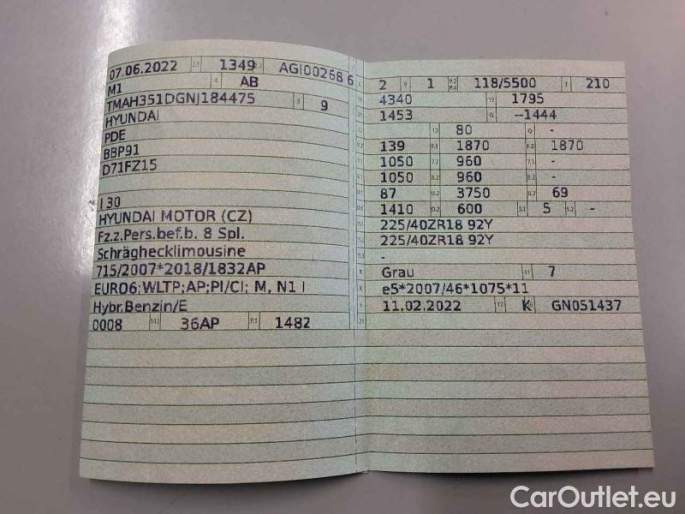 07.06.2022 1349 AGI00268 6
M1 AB
TMAH351DGNJ184475 9
HYUNDAI
PDE
BBP91
D71FZ15
I 30
HYUNDAI MOTOR (CZ)
Fz.z.Pers.bef.b. 8 Spl.
Schräghecklimousine
715/2007*2018/1832AP
EURO6;WLTP;AP;PI/CI; M, N1 I
Hybr.Benzin/E
0008 36AP 1482
2 1 118/5500 210
4340 1795
1453 --1444
80 -
139 1870 1870
1050 960 -
1050 960 -
87 3750 69
1410 600 5 -
225/40ZR18 92Y
225/40ZR18 92Y
-
Grau 7
e5*2007/46*1075*11
11.02.2022 K GN051437
CarOutlet.eu